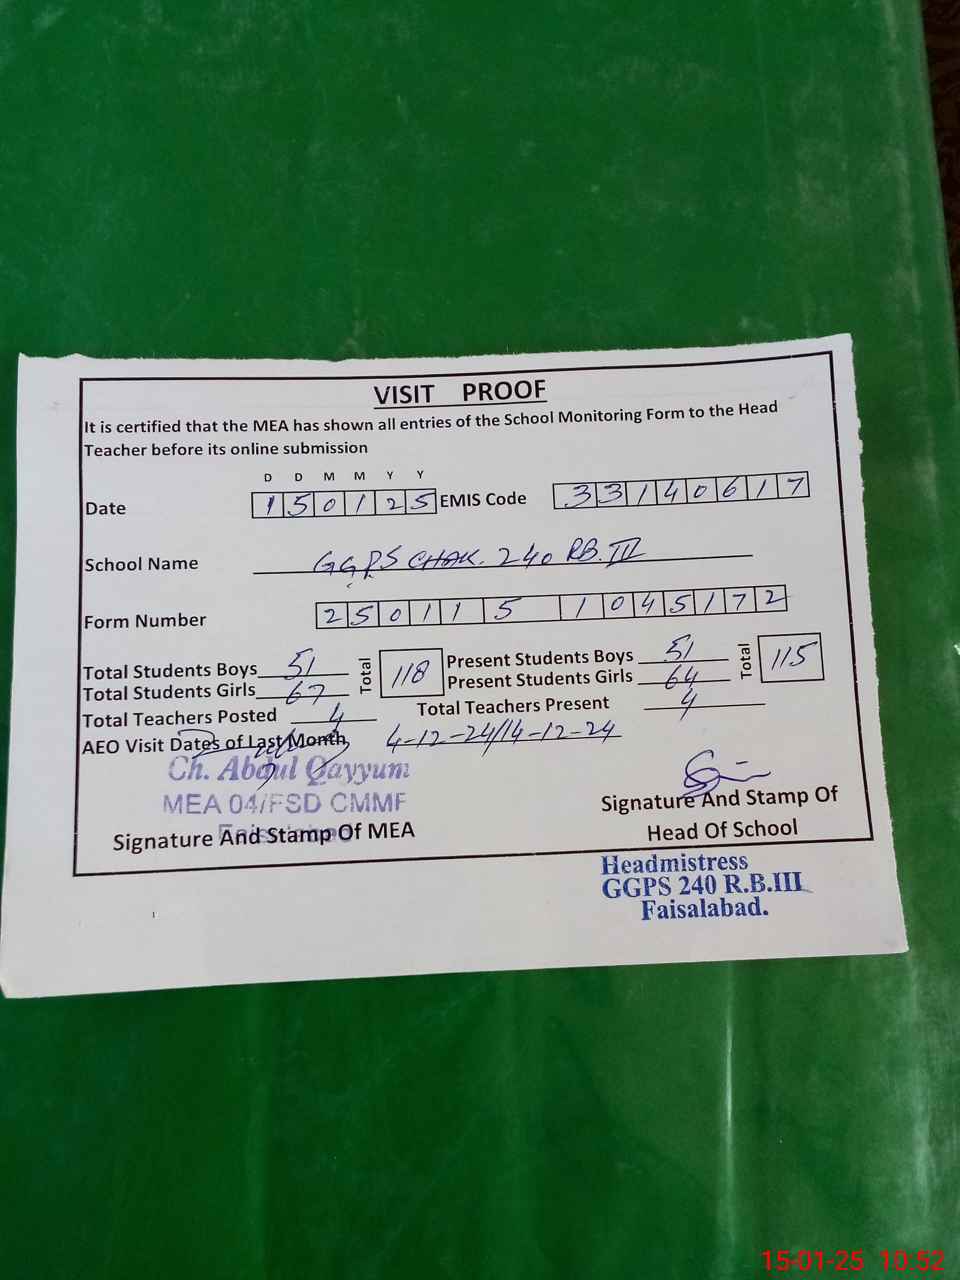 VISIT PROOF
It is certified that the MEA has shown all entries of the School Monitoring Form to the Head
Teacher before its online submission
D D M M Y Y
Date 1 5 0 1 2 5 EMIS Code 3 3 1 4 0 6 1 7
School Name GGPS CHAK. 240 RB. III
Form Number 2 5 0 1 1 5 1 0 4 5 1 7 2
Total Students Boys 51 Total 118 Present Students Boys 51 Total 115
Total Students Girls 67 Present Students Girls 64
Total Teachers Posted 4 Total Teachers Present 4
AEO Visit Dates of Last Month 4-12-24/14-12-24
Ch. Abdul Qayyum
MEA 04/FSD CMMF
Signature And Stamp Of MEA
Signature And Stamp Of
Head Of School
Headmistress
GGPS 240 R.B.III
Faisalabad.
15-01-25 10:52